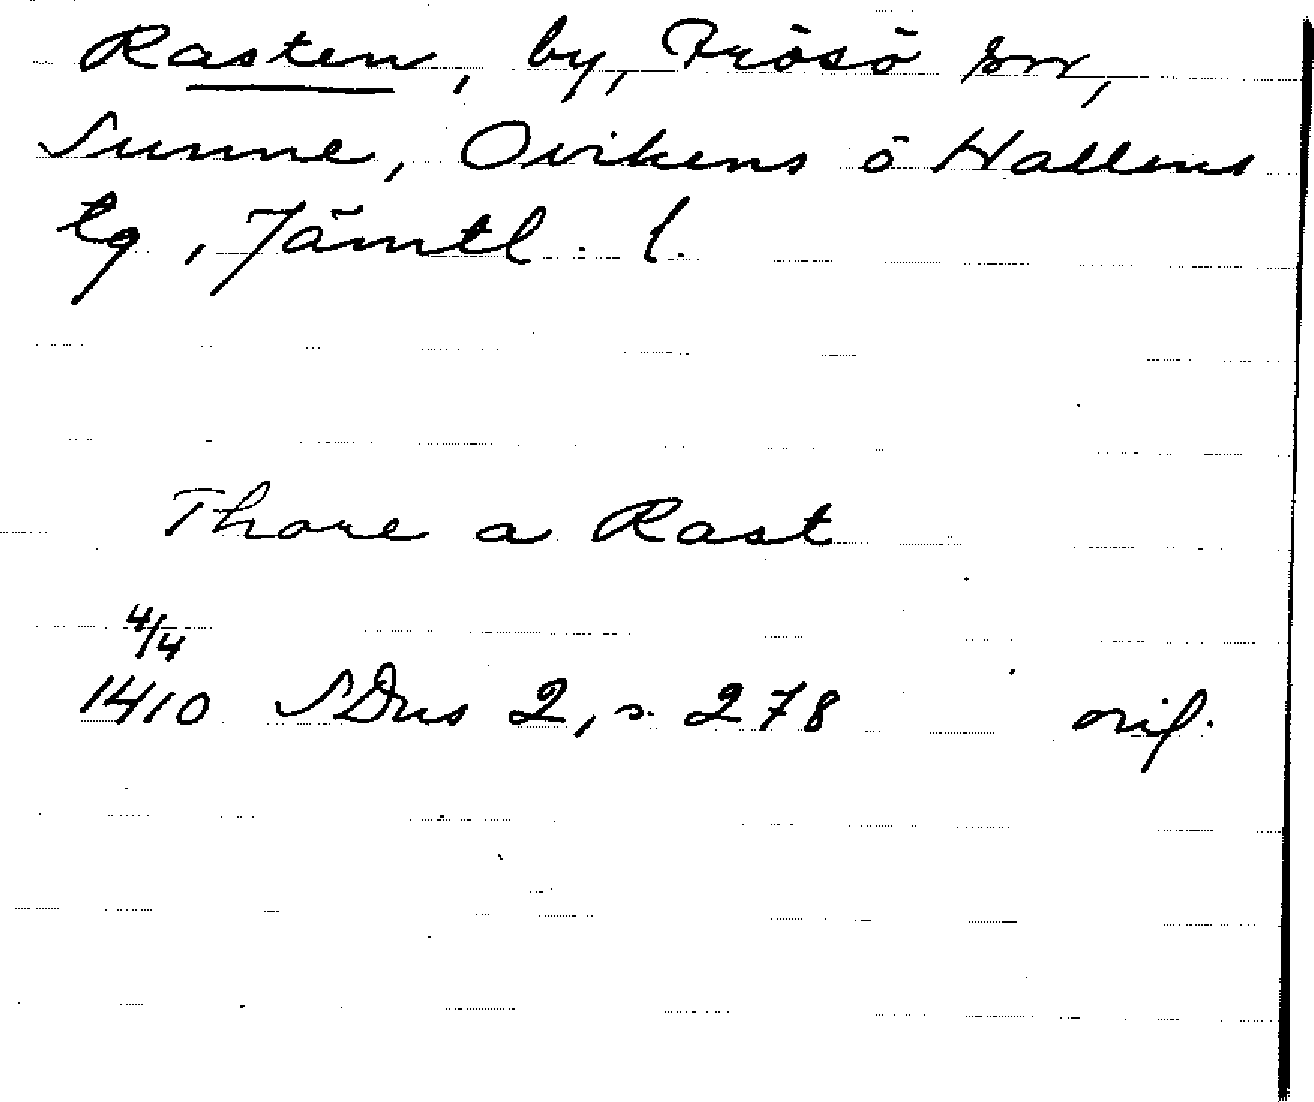 Rasten, by, Frösö sn,
Sunne, Ovikens o Hallens
tg, Jämtl. l.
Thore a Rast
4/4
1410 SDns 2, s. 278 orig.